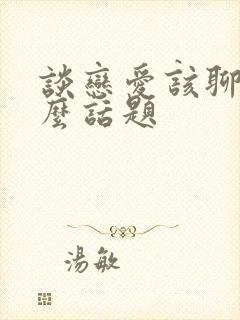 談戀愛該聊
麼話題
湯敏